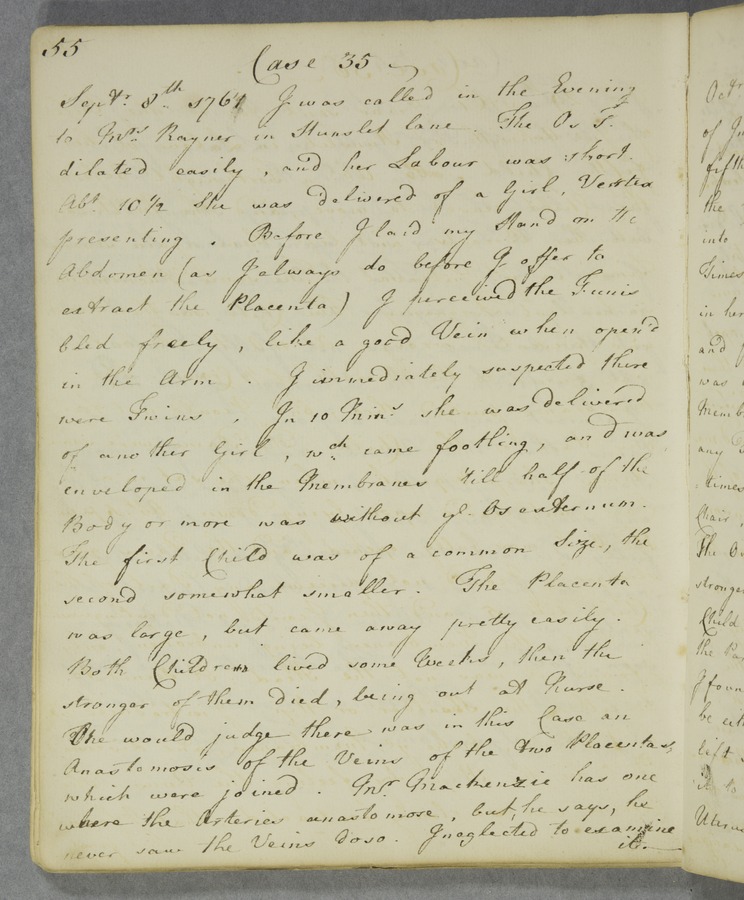 55
Case 35
Septr. 8th 1764 I was called in the Evening
to Mrs. Rayner in Hunslet lane. The Os T.
dilated easily, and her Labour was short.
Abt. 10 1/2 she was delivered of a Girl, Vertex
presenting. Before I laid my Hand on the
Abdomen (as I always do before I offer to
extract the Placenta) I perceived the Funis
bled freely, like a good Vein when open'd
in the Arm. I immediately suspected there
were Twins. In 10 Mins. she was delivered
of another Girl, wch. came footling, and was
enveloped in the Membranes till half of the
Body or more was without ye. Os externum.
The first Child was of a common Size, the
second somewhat smaller. The Placenta
was large, but came away pretty easily.
Both Children lived some Weeks, then the
stronger of them died, being out at Nurse.
One would judge there was in this Case an
Anastomosis of the Veins of the two Placentas,
which were joined. Mr. Mackenzie has one
where the Arteries anastomose, but, he says, he
never saw the Veins doso. I neglected to examine
it.
Octr.
of
fifth
the
into
Times
in her
and
was
Memb
any
times
Chair,
The
stronger
Child
the
I foun
be
lift
to